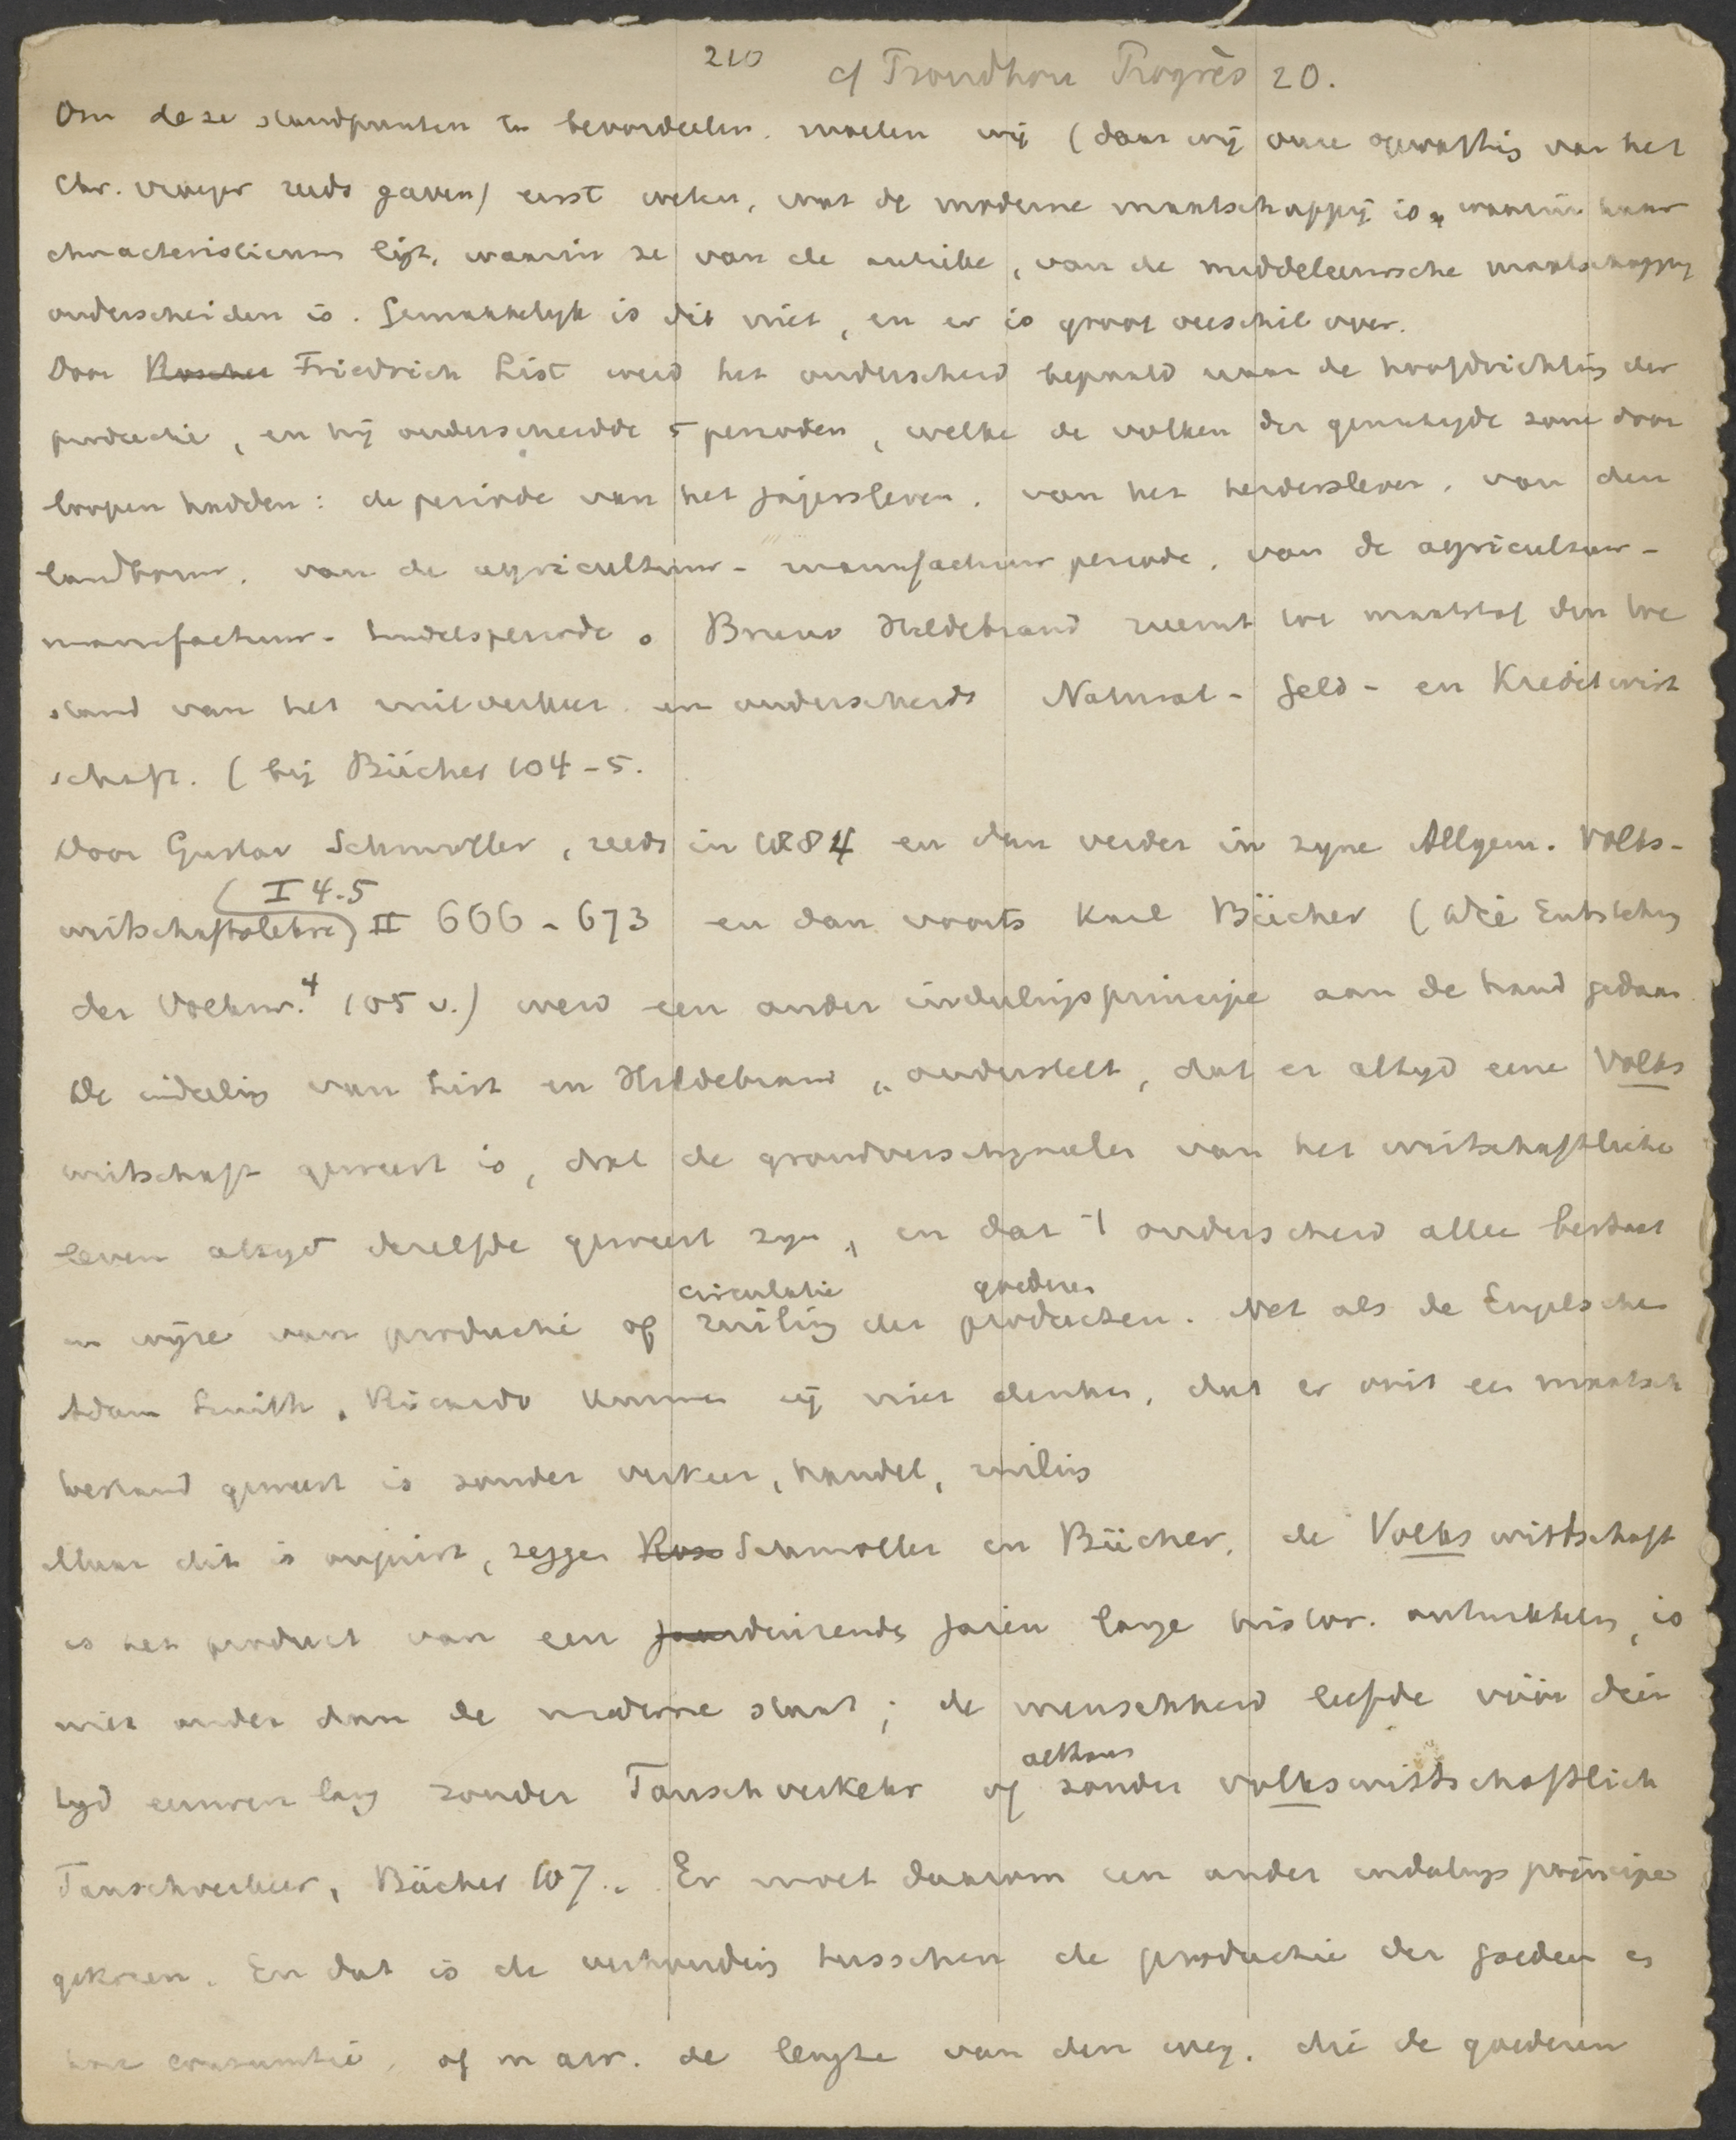 210 cf Proudhon Progrès 20.
Om deze standpunten te beoordeelen. moeten wij (daar wij onze opvatting van het
Chr. reeds gaven) eerst weten, wat de moderne maatschappij is, waarin haar
characteristicum ligt, waarin ze van de antieke, van de middeleeuwsche maatschappij
onderscheiden is. Gemakkelyk is dit niet, en er is groot verschil over.
Door Roscher Friedrich List werd het onderscheid bepaald naar de hoofdrichting der
productie, en hij onderscheidde 5 perioden, welke de volken der gematigde zone door
loopen hadden: de periode van het jagersleven. van het herdersleven. van den
landbouw. van de agricultuur- manufactuur periode. van de agricultuur-
manufactuur- handelsperiode. Bruno Hildebrand neemt tot maatstaf den toe
stand van het ruilverkeer en onderscheidt Natural- Geld- en Kreditwirt
schaft. (bij Bücher 104-5.
Door Gustav Schmoller, reeds in 1884 en dan verder in zyne Allgem. Volks-
(I 4.5
wirtschaftslehre) II 666-673 en dan voorts Karl Bücher (Die Entstehung
der Volksw.⁴ 105 v.) werd een ander indeelingsprincipe aan de hand gedaan
De indeeling van List en Hildebrand „onderstelt, dat er altyd eene Volks
wirtschaft geweest is, dat de grondverschynselen van het wirtschaftliche
leven altyd dezelfde geweest zyn, en dat 't onderscheid alleen bestaat
circulatie goederen
in wyze van productie of ruiling der producten. Net als de Engelschen
Adam Smith, Ricardo kunnen zij niet denken, dat er ooit een maatsch
bestand geweest is zonder verkeer, handel, ruiling
Maar dit is onjuist, zeggen Ros Schmoller en Bücher. de Volkswirtschaft
is het product van een jaarduizende jaren lange histor. ontwikkeling, is
niet ouder dan de moderne staat; de menschheid leefde vóór dien
althans
tyd eeuwen lang zonder Tauschverkehr of zonder volkswirtschaftlich
Tauschverkeer, Bücher 107.. Er moet daarom een ander indeelings principe
gekozen. En dat is de verhouding tusschen de productie der goederen en
hare consumtie, of m a w. de lengte van den weg. die de goederen